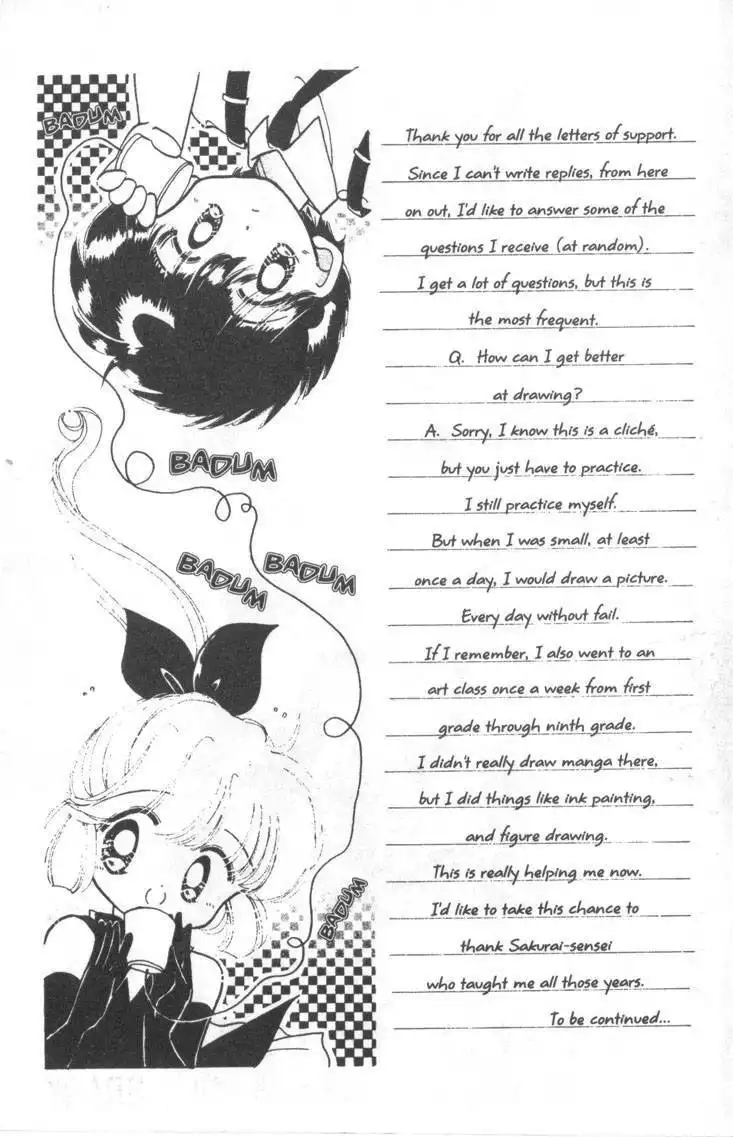 BADUM
BADUM
BADUM
BADUM
BADUM
Thank you for all the letters of support.
Since I can't write replies, from here
on out, I'd like to answer some of the
questions I receive (at random).
I get a lot of questions, but this is
the most frequent.
Q. How can I get better
at drawing?
A. Sorry, I know this is a cliché,
but you just have to practice.
I still practice myself.
But when I was small, at least
once a day, I would draw a picture.
Every day without fail.
If I remember, I also went to an
art class once a week from first
grade through ninth grade.
I didn't really draw manga there,
but I did things like ink painting,
and figure drawing.
This is really helping me now.
I'd like to take this chance to
thank Sakurai-sensei
who taught me all those years.
To be continued...